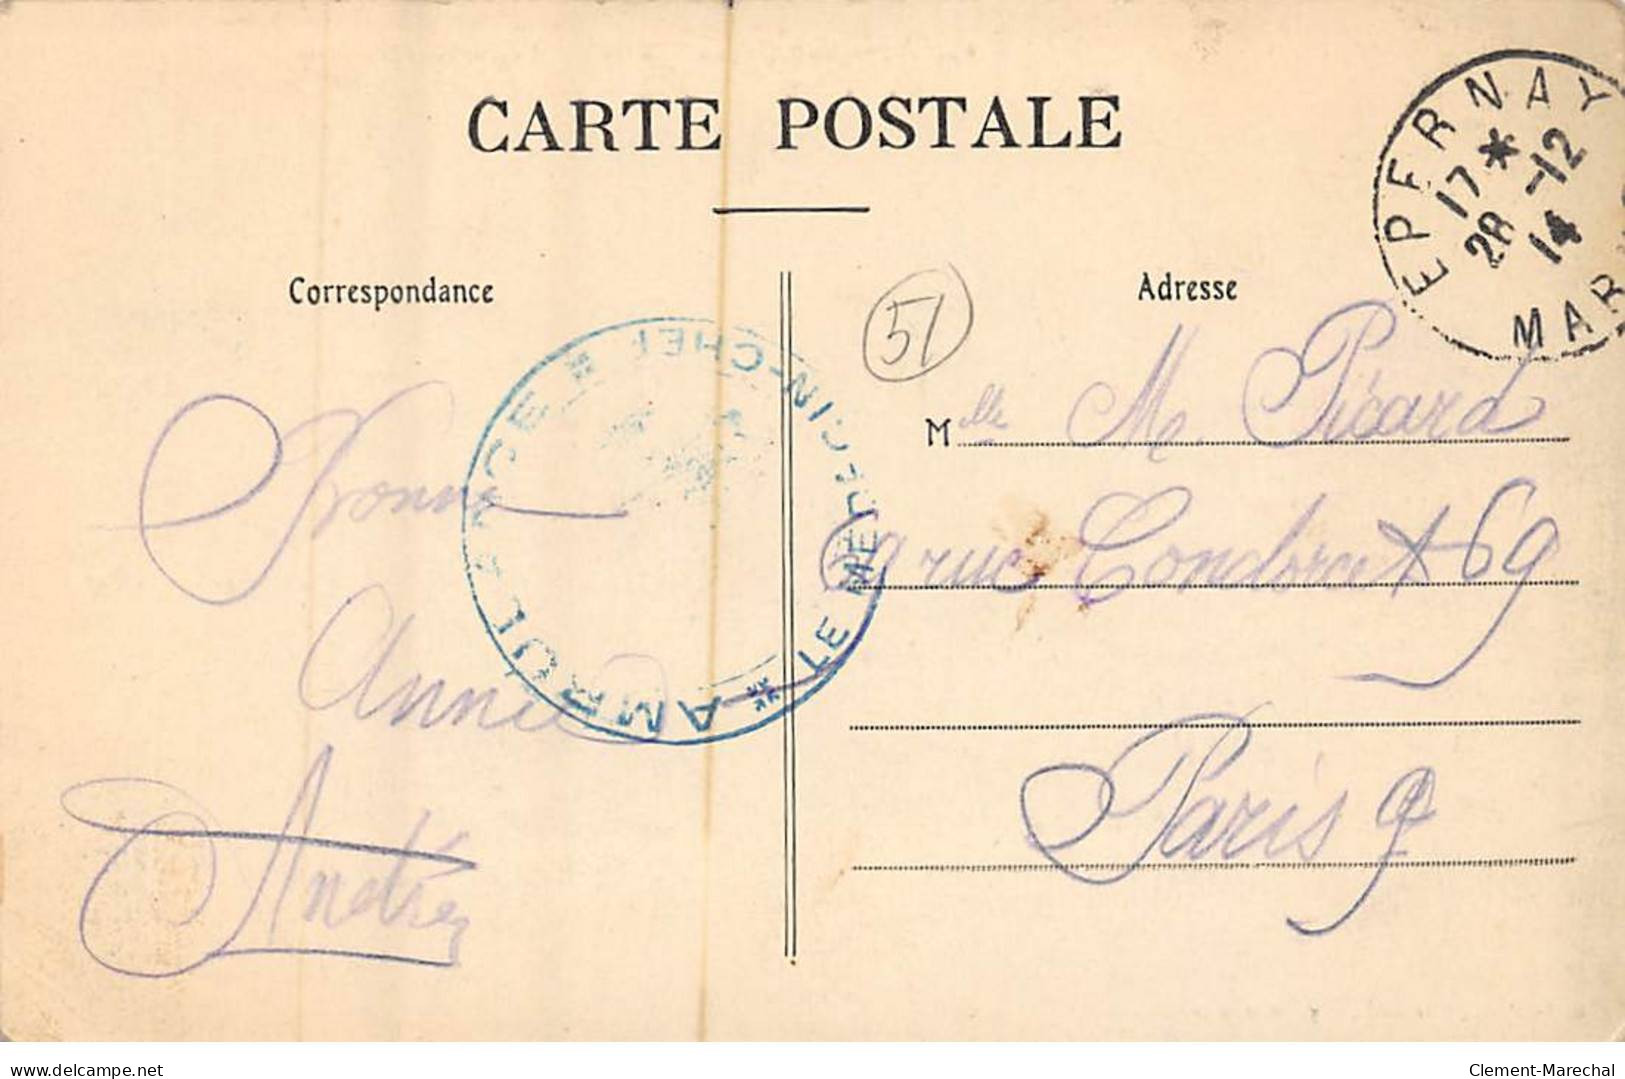 CARTE POSTALE
EPERNAY
17 * 28 -12 14
MAR
Correspondance
Adresse
51
AMBULANCE * LE MEDECIN-CHEF *
Bonne
Année
André
Mlle M. Picard
69 rue Condorcet 69
Paris 9
delcampe.net
Clement-Marechal